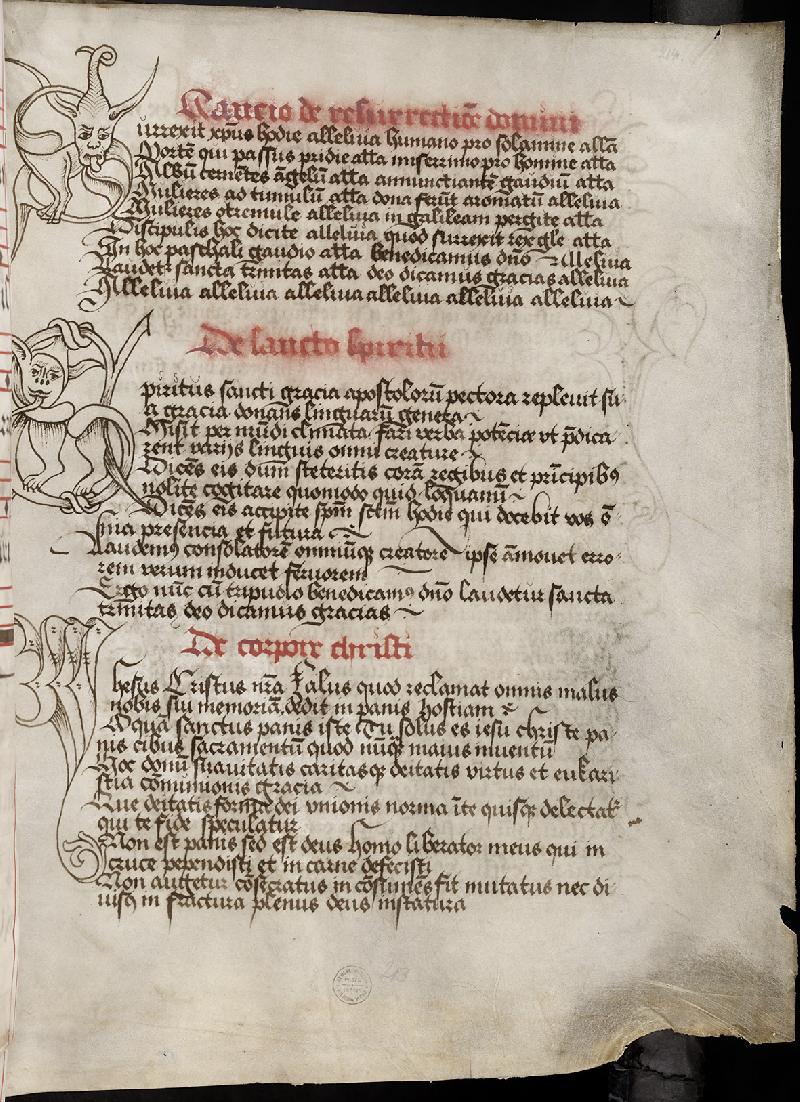 Cancio de resurrectiōe domini
urrexit xp̄us hodie alleluia humano pro solamine all̄a
Mortē qui passus pridie all̄a miserrimo pro homine all̄a
Mulieres ad tumulū all̄a dona ferūt aromatū alleluia
alleluia in galileam pergite all̄a
Discipulis hoc dicite alleluia quod surrexit rex gl̄e all̄a
In hoc paschali gaudio all̄a benedicamus dn̄o alleluia
Laudet᷑ sancta trinitas all̄a deo dicamus gracias alleluia
Alleluia alleluia alleluia alleluia alleluia alleluia
De sancto spiritu
piritus sancti gracia apostolorū pectora repleuit su
a gracia donans linguarū genera
Misit per mūdi climata fari verba potēcie vt p̄dica
rent varijs linguis omni creature
Dicēs eis dum steteritis corā regibus et prīcipibꝰ
nolite cogitare quomodo quid loquamī
Dicēs eis accipite sp̄m sc̄m hodie qui docebit vos ō
nia presencia et futura
Laudemꝰ consolatorē omniūqꝫ creatorē ipse āmouet erro
rem verum inducet feruorem
Ergo nūc cū tripudio benedicamꝰ dn̄o laudetur sancta
trinitas deo dicamus gracias
De corpore christi
hesus Cristus nr̄a salus quod reclamat omnis malus
nobis sui memoriā dedit in panis hostiam
O quā sanctus panis iste Tu solus es iesu christe pa
nis cibus sacramentū quod nūqꝫ maius inuentū
Hoc donū suauitatis caritasqꝫ deitatis virtus et eukari
stia cōmunionis gracia
Aue deitatis forma dei vnionis norma ī te quisqꝫ delectat᷑
qui te fide speculatur
Non est panis sed est deus homo liberator meus qui in
cruce pependisti et in carne defecisti
Non augetur cōsecratus in cōsumēs fit mutatus nec di
uisꝰ in fractura plenus deus in statura
213